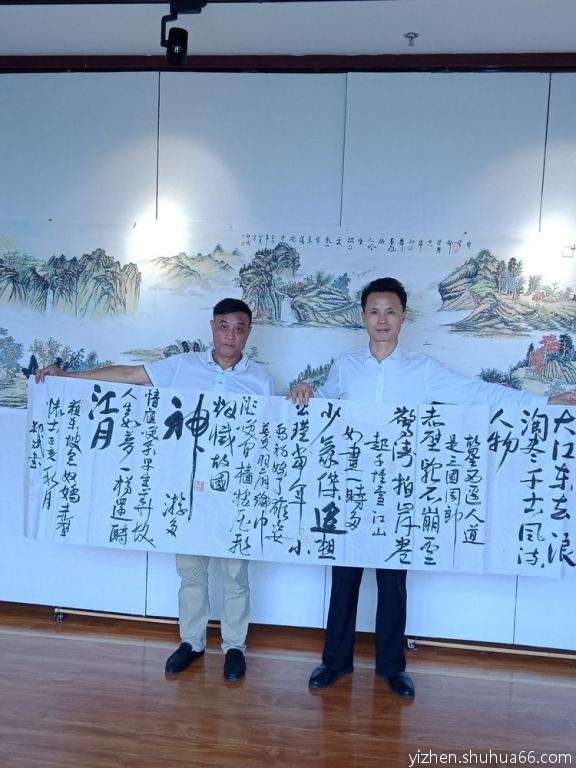 大江东去浪
淘尽千古风流
人物
故垒西边人道
是三国周郎
赤壁乱石崩云
惊涛拍岸卷
起千堆雪江山
如画一时多
少豪杰遥想
公瑾当年小
乔初嫁了雄姿
英发羽扇纶巾
谈笑间樯橹灰飞
烟灭故國
神游多
情应笑我早生华发
人生如梦一樽还酹
江月
苏东坡念奴娇赤壁
怀古
yizhen.shuhua66.com